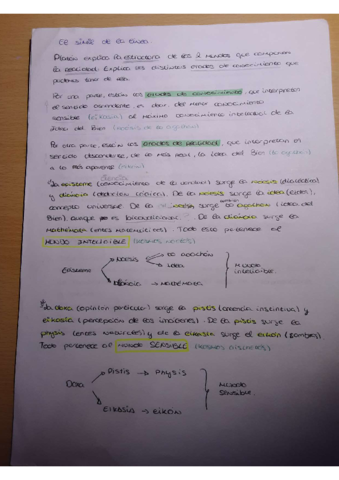 El símil de la línea
Platón explica la estructura de los 2 mundos que componen
la realidad. Explica los distintos grados de conocimiento que
podemos tener de ella.
Por una parte, están los grados de conocimiento, que interpretan
el sentido ascendente, es decir, del menor conocimiento
sensible (eikasia) al máximo conocimiento intelectual de la
idea del Bien
Por otra parte, están los grados de realidad, que interpretan en
sentido descendente, de lo más real, la idea del Bien
a lo más aparente
La episteme (conocimiento de la verdad) surge la noesis (dialéctica)
y dianoia (deducción lógica). De la noesis surge la idea (eidos),
concepto universal. De la noesis surge to agathon (idea del
Bien), aunque es La dianoia surge la
mathemática (entes matemáticos). Todo esto pertenece al
MUNDO INTELIGIBLE
Episteme
Noesis
to agathon
Idea
Dianoia → mathemata
Mundo
inteligible.
La doxa (opinión particular) surge la pistis (creencia instintiva) y
eikasia (percepción de las imágenes). De la pistis surge la
physis (entes naturales) y de la eikasia surge el eikon (sombra).
Todo pertenece al MUNDO SENSIBLE
Doxa
Pistis → Physis
Eikasia → Eikon
Mundo
sensible.